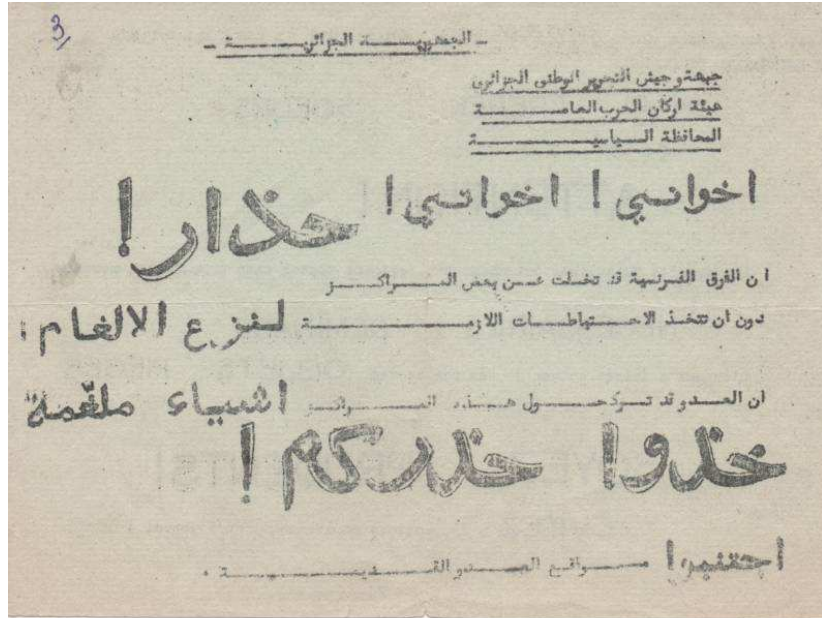 3
ـ الجمهوريـــة الجزائريـــــة ـ
جبهة و جيش التحرير الوطني الجزائري
هيئة اركان الحرب العامـــــة
المحافظة السياسيـــــة
اخواني ! اخواني ! حذار !
ان الفرق الفرنسية قد تخلت عــن بعض المـــراكـــز
دون ان تتخذ الاحـتـياطـــات اللازمـــــة لنزع الالغام :
ان العـدو قد تــرك حــول هــذه المـــراكــز "اشياء ملغّمة"
خذوا حذركم !
اجتنبوا مـــواقــع العــدو القـــديـمـــــة .